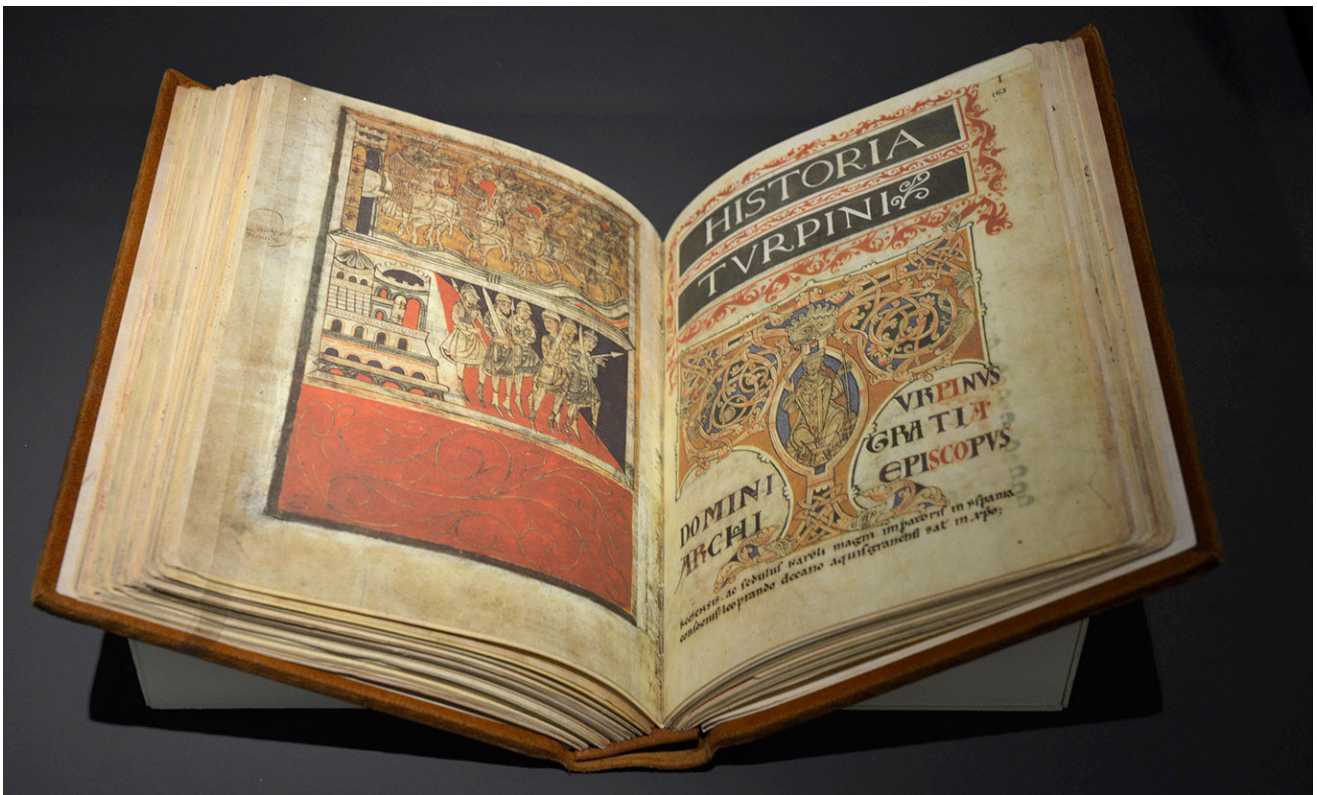 I
163
HISTORIA
TVRPINI
VRPINVS
DOMINI GRATIA
ARCHI EPISCOPVS
REMENSIS. ac sedulus karoli magni imparoris in yspania
consocius leoprando decano aquisgranensi sal in xpo;